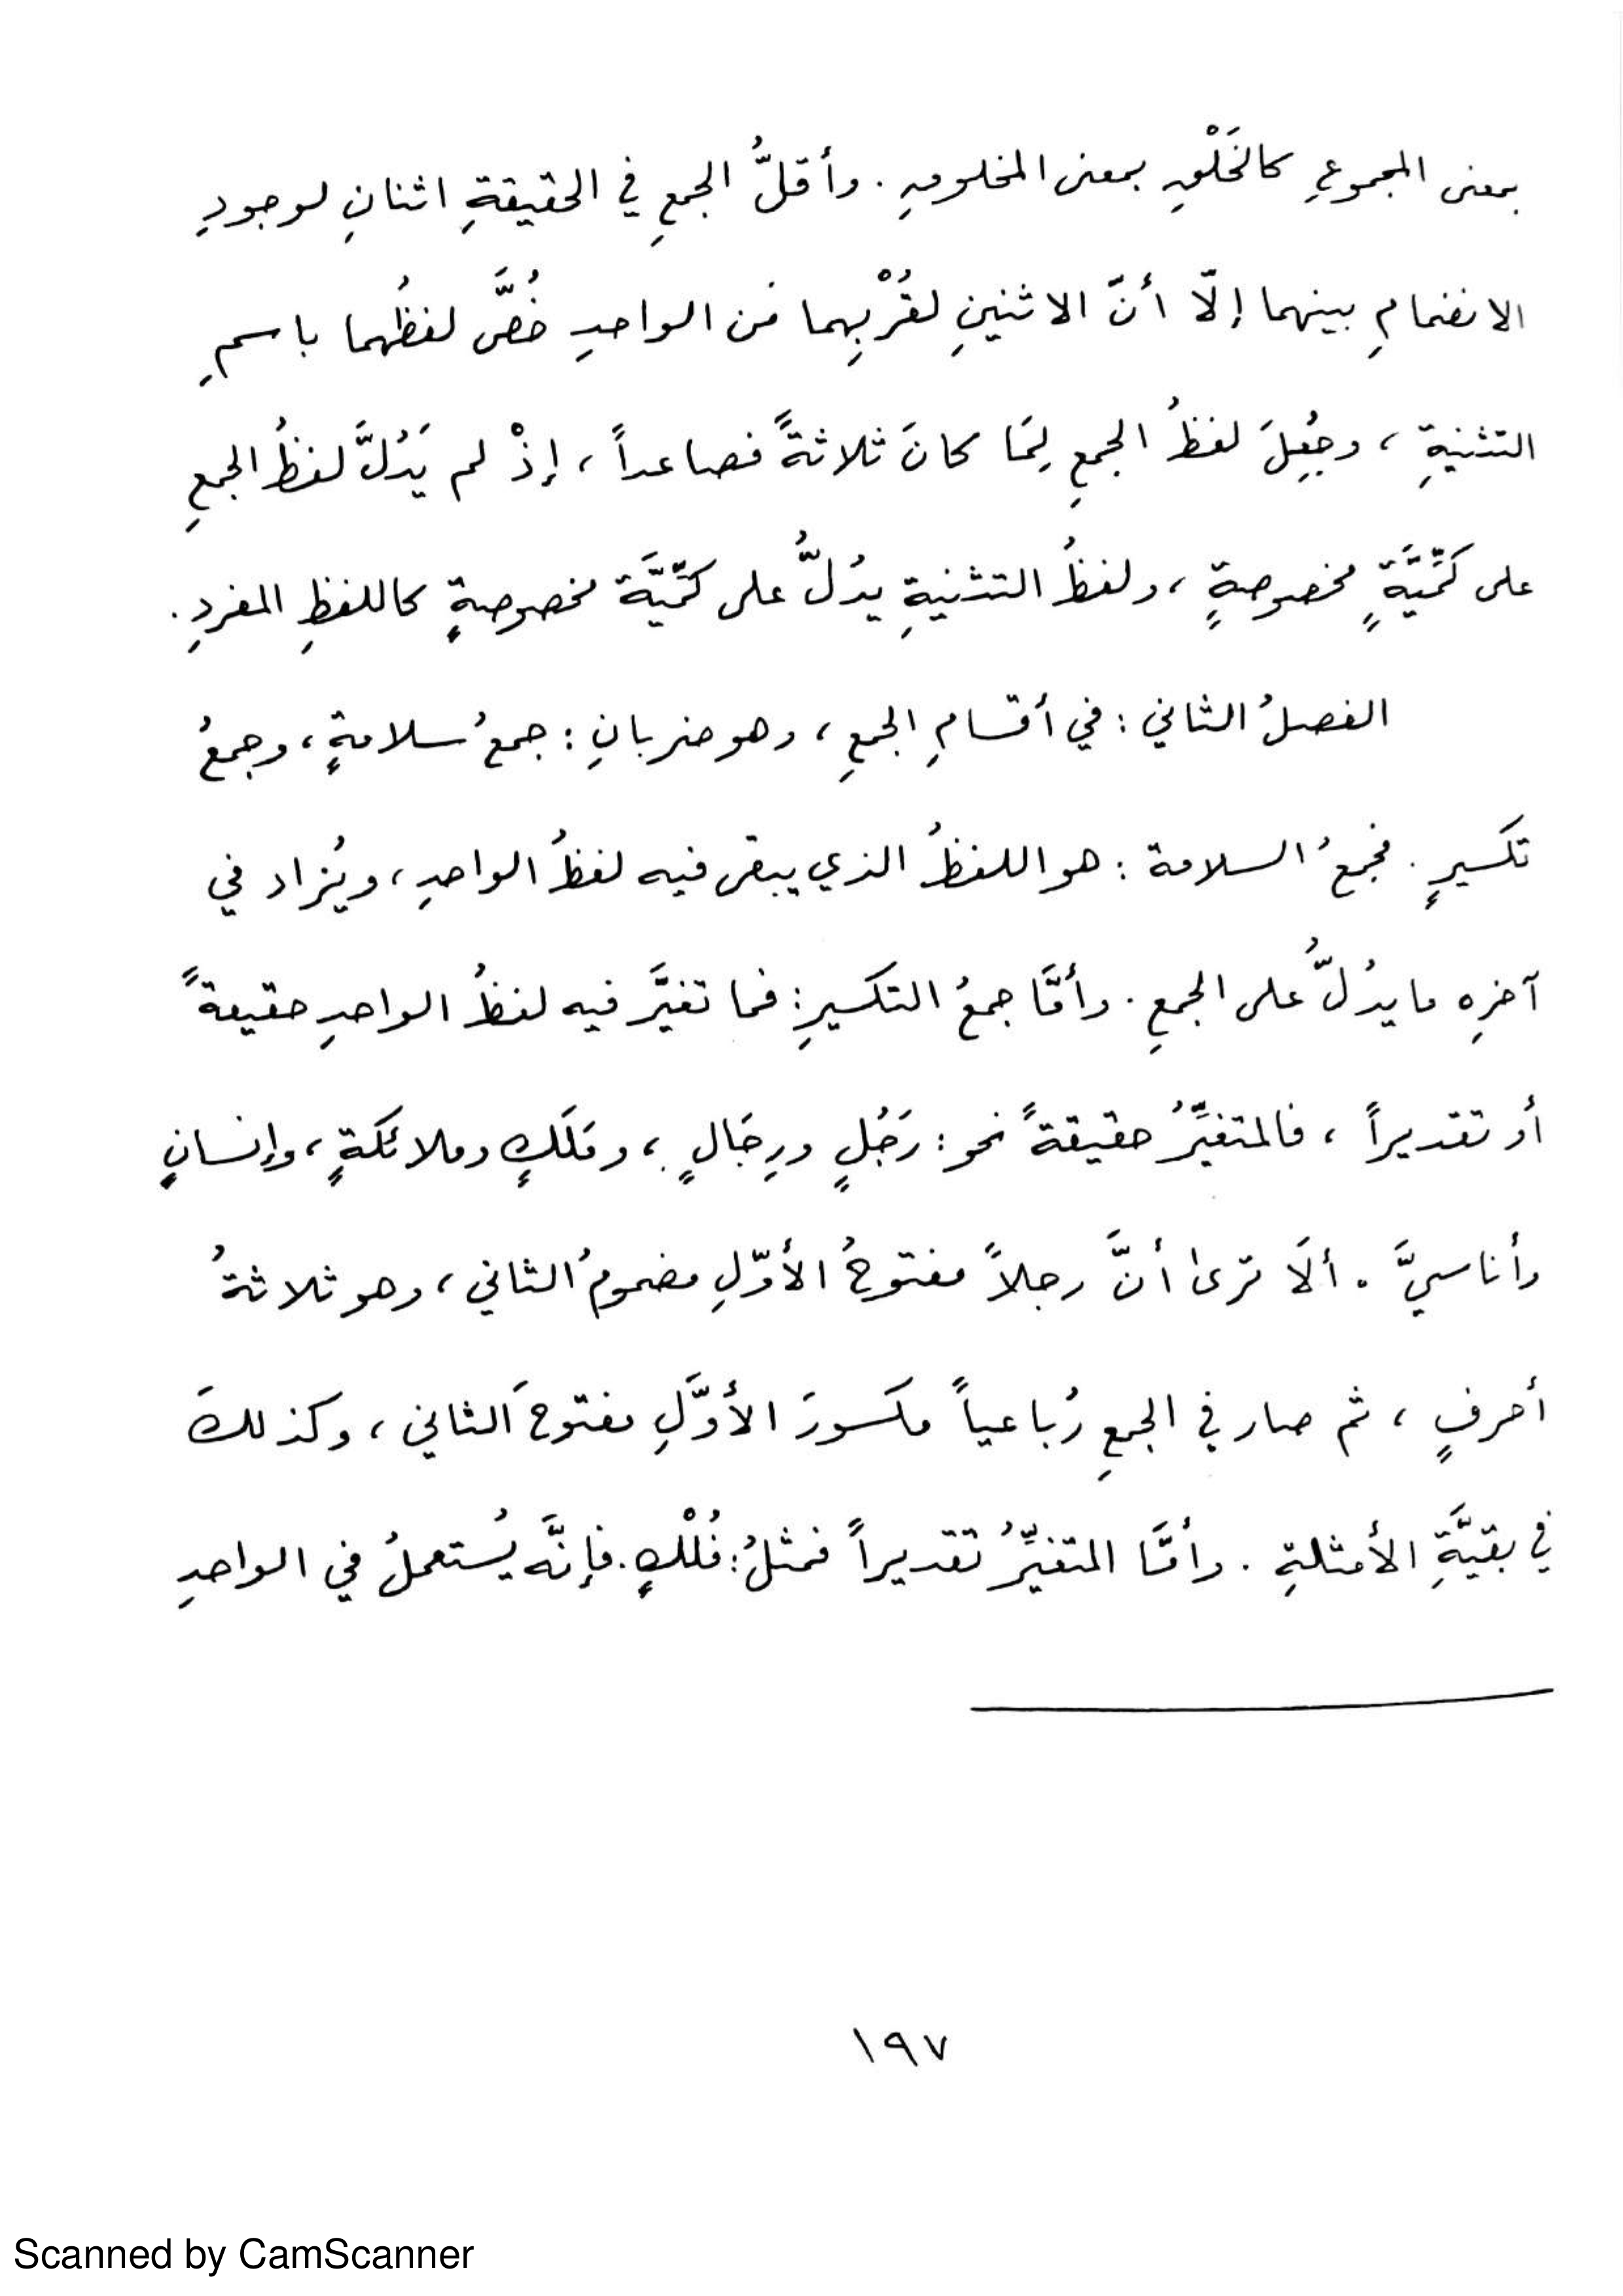 بمعنى المجموعِ كالخَلْقِ بمعنى المخلوقِ . وأقلُّ الجمعِ في الحقيقةِ اثنانِ لوجودِ
الانضمامِ بينهما إلّا أنّ الاثنينِ لقُرْبِهما مَن الواحدِ خُصَّ لفظُهما باسمِ
التثنيةِ ، وجُعِلَ لفظُ الجمعِ لِمَا كانَ ثلاثةً فصاعداً ، إذْ لم يَدُلَّ لفظُ الجمعِ
على كَمِّيَّةٍ مخصوصةٍ ، ولفظُ التثنيةِ يدُلُّ على كَمِّيَّة مخصوصةٍ كاللفظِ المفردِ .
الفصلُ الثاني : في أقسامِ الجمعِ ، وهو ضربانِ : جمعُ سلامةٍ ، وجمعُ
تكسيرٍ . فجمعُ السلامة : هو اللفظُ الذي يبقى فيه لفظُ الواحدِ ، ويُزاد في
آخرِه ما يدُلُّ على الجمعِ . وأمَّا جمعُ التكسيرِ : فما تغيَّر فيه لفظُ الواحدِ حقيقةً
أو تقديراً ، فالمتغيِّرُ حقيقةً نحو : رَجُلٍ ورِجَالٍ ، ومَلَكٍ وملائكةٍ ، وإنسانٍ
وأناسيَّ . ألَا ترى أنَّ رجلاً مفتوحُ الأوّلِ مضمومُ الثاني ، وهو ثلاثةُ
أحرفٍ ، ثم صار في الجمعِ رُباعياً مكسورَ الأوَّلِ مفتوحَ الثاني ، وكذلكَ
في بقيَّةِ الأمثلةِ . وأمَّا المتغيِّرُ تقديراً فمثلُ : فُلْكٍ . فإنَّه يُستعملُ في الواحدِ
١٩٧
Scanned by CamScanner